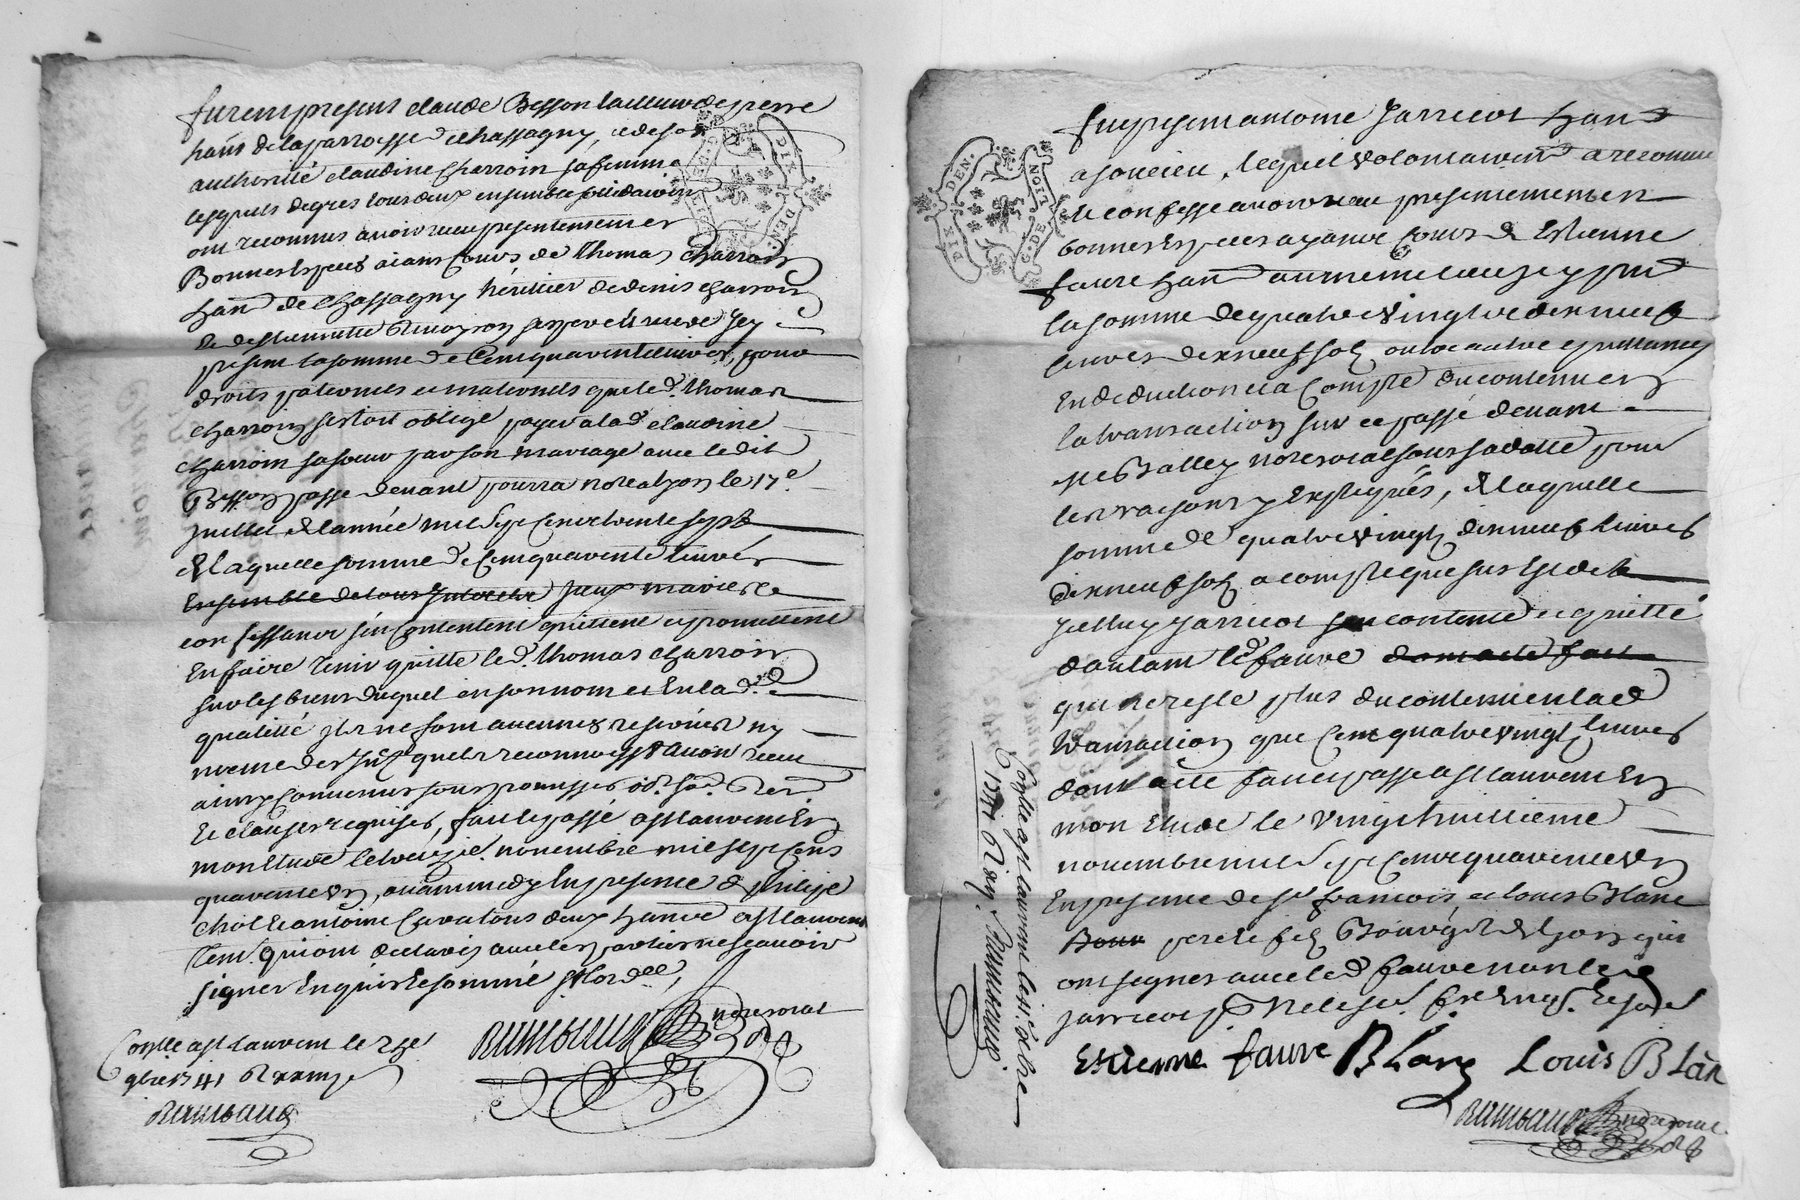 furent present claude Besson tailleur de pierre
han̄t de la parroesse de chassagny, et de son
authorité claudine Charroin sa femme
lesquels de gres tous deux ensemble sollidairem̄t
ont reconnus avoir receu presentement en
Bonnes espeses aians cours de thomas Charroin
han̄t de Chassagny héritier de denis charroin
present la somme de Cent quarante livres, pour
droits paternels et maternels que led. thomas
charroin s'estoit obligé payer a lad. claudine
charroin sa soeur par son mariage avec le dit
Besson passé devant pourra no.re a lyon le 17e.
juillet de l'année mil sept cent trente sept
de laquelle somme de Cent quarante livres
Ensemble de tous jnterets jceux mariés le
confessant s'en contentent quittent et promettent
En faire tenir quitte led. thomas charroin
sur les biens duquel en son nom et En lad.te
qualitté jls ne font aucunes reserves ny
mesme des jnt. quels reconnoissent avoir receu
ainsy convenus sous promesses ob. so. Ren.
Et clauses requises, fait et passé a st laurent En
mon Etude le treize novembre mil sept cens
quarante un, avant midy En presence de philipe
chol et antoine Cavalons deux han̄t a st laurent
tem. qui ont declarés avec les parties ne scavoir
signer Enquis et sommé st lord.ce,
Raimbaud no.re royal
Con.lle a st laurent le 23e
9bre 1741 R
Raimbaud
DIX DEN.
G. DE LION
fut present antoine Jarricot han̄t
a soucieu, lequel volontairem̄t a reconnu
et confesse avoir receu presentement en
bonnes Especes ayant cours de Estienne
faure han̄t au meme lieu jcy pnt
la somme de quatre vingt et dix neuf
livres dix neuf solz outre autre quittances
En deduction et a compte du contenu En
la transaction sur ce passé devant
Me Balley no.re royal sous sa datte pour
les raisons y Expliqués, de laquelle
somme de quatre vingt dix neuf livres
dix neuf solz a compte que sus Est dit
jcelluy Jarricot s'en contente et quitte
d'autant led. faure dont acte fait
qui ne reste plus du contenu en lad.
transaction que Cent quatre vingt livres
dont acte fait et passé a st laurent En
mon Etude le vingt huittieme
novembre mil sept cent quarante un
En presence de sr. francois et louis Blanc
Bour pere et filz Bourgeois de lyon qui
ont signes avec led. faure non led.
Jarricot
Estienne faure Blanc Louis Blan
Raimbaud no.re royal
Con.lle a st laurent
1741
Raimbaud